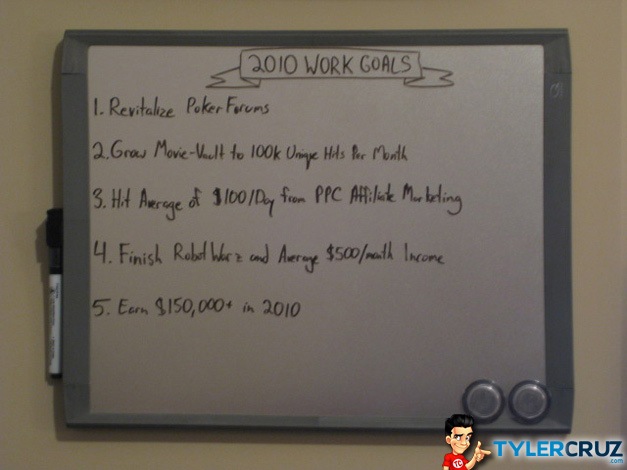 2010 WORK GOALS
1. Revitalize Poker Forums
2. Grow Movie-Vault to 100k Unique Hits Per Month
3. Hit Average of $100/Day from PPC Affiliate Marketing
4. Finish Robot Warz and Average $500/month Income
5. Earn $150,000+ in 2010
TC
TYLERCRUZ.com